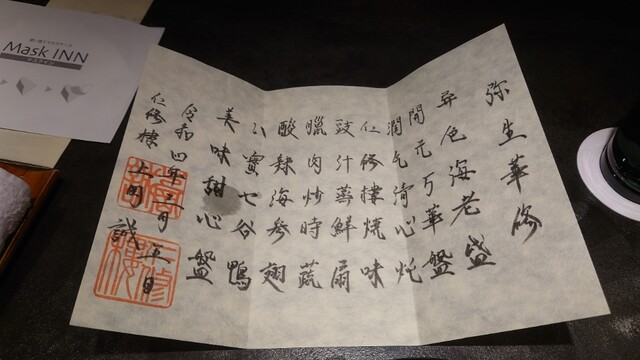 弥生華修
异色海老盛
開元万華盤
潤气清心炖
仁修樓焼味
豉汁蒸鮮扇
臘肉炒時蔬
酸辣海参翅
八寶七谷鴨
美味甜心盤
令和四年三月五日
仁修樓 上岡誠
Mask INN